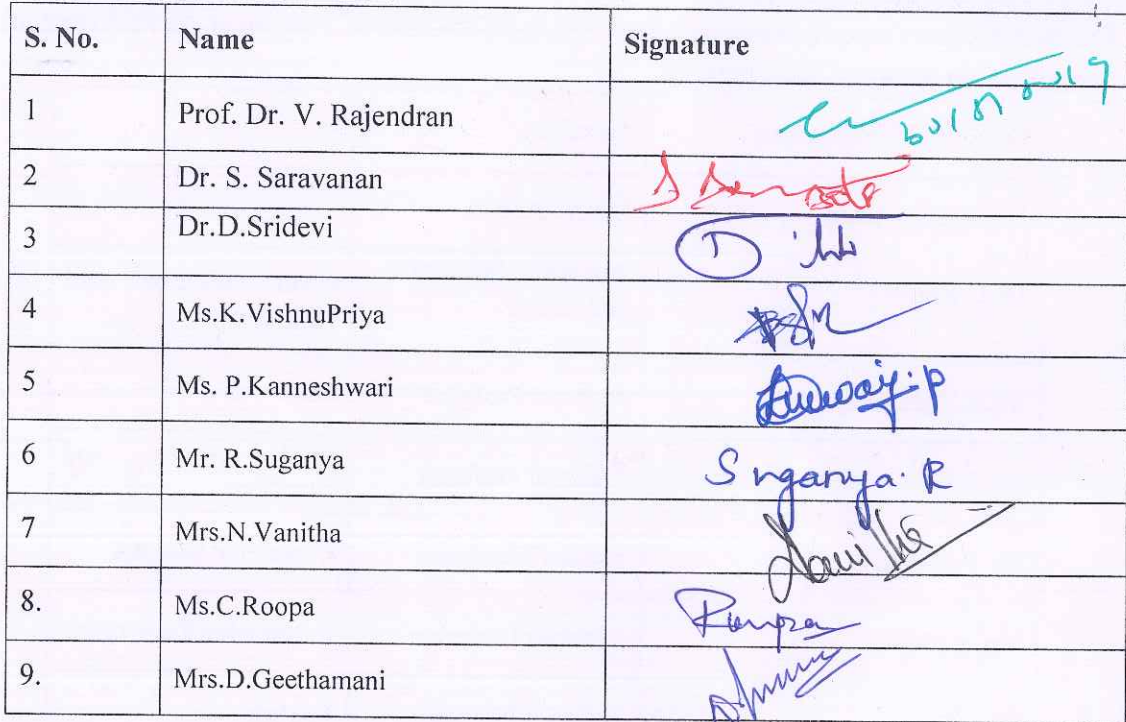 S. No. Name Signature
1 Prof. Dr. V. Rajendran
2 Dr. S. Saravanan
3 Dr.D.Sridevi
4 Ms.K.VishnuPriya
5 Ms. P.Kanneshwari
6 Mr. R.Suganya Suganya. R
7 Mrs.N.Vanitha Vanitha
8. Ms.C.Roopa Roopa
9. Mrs.D.Geethamani